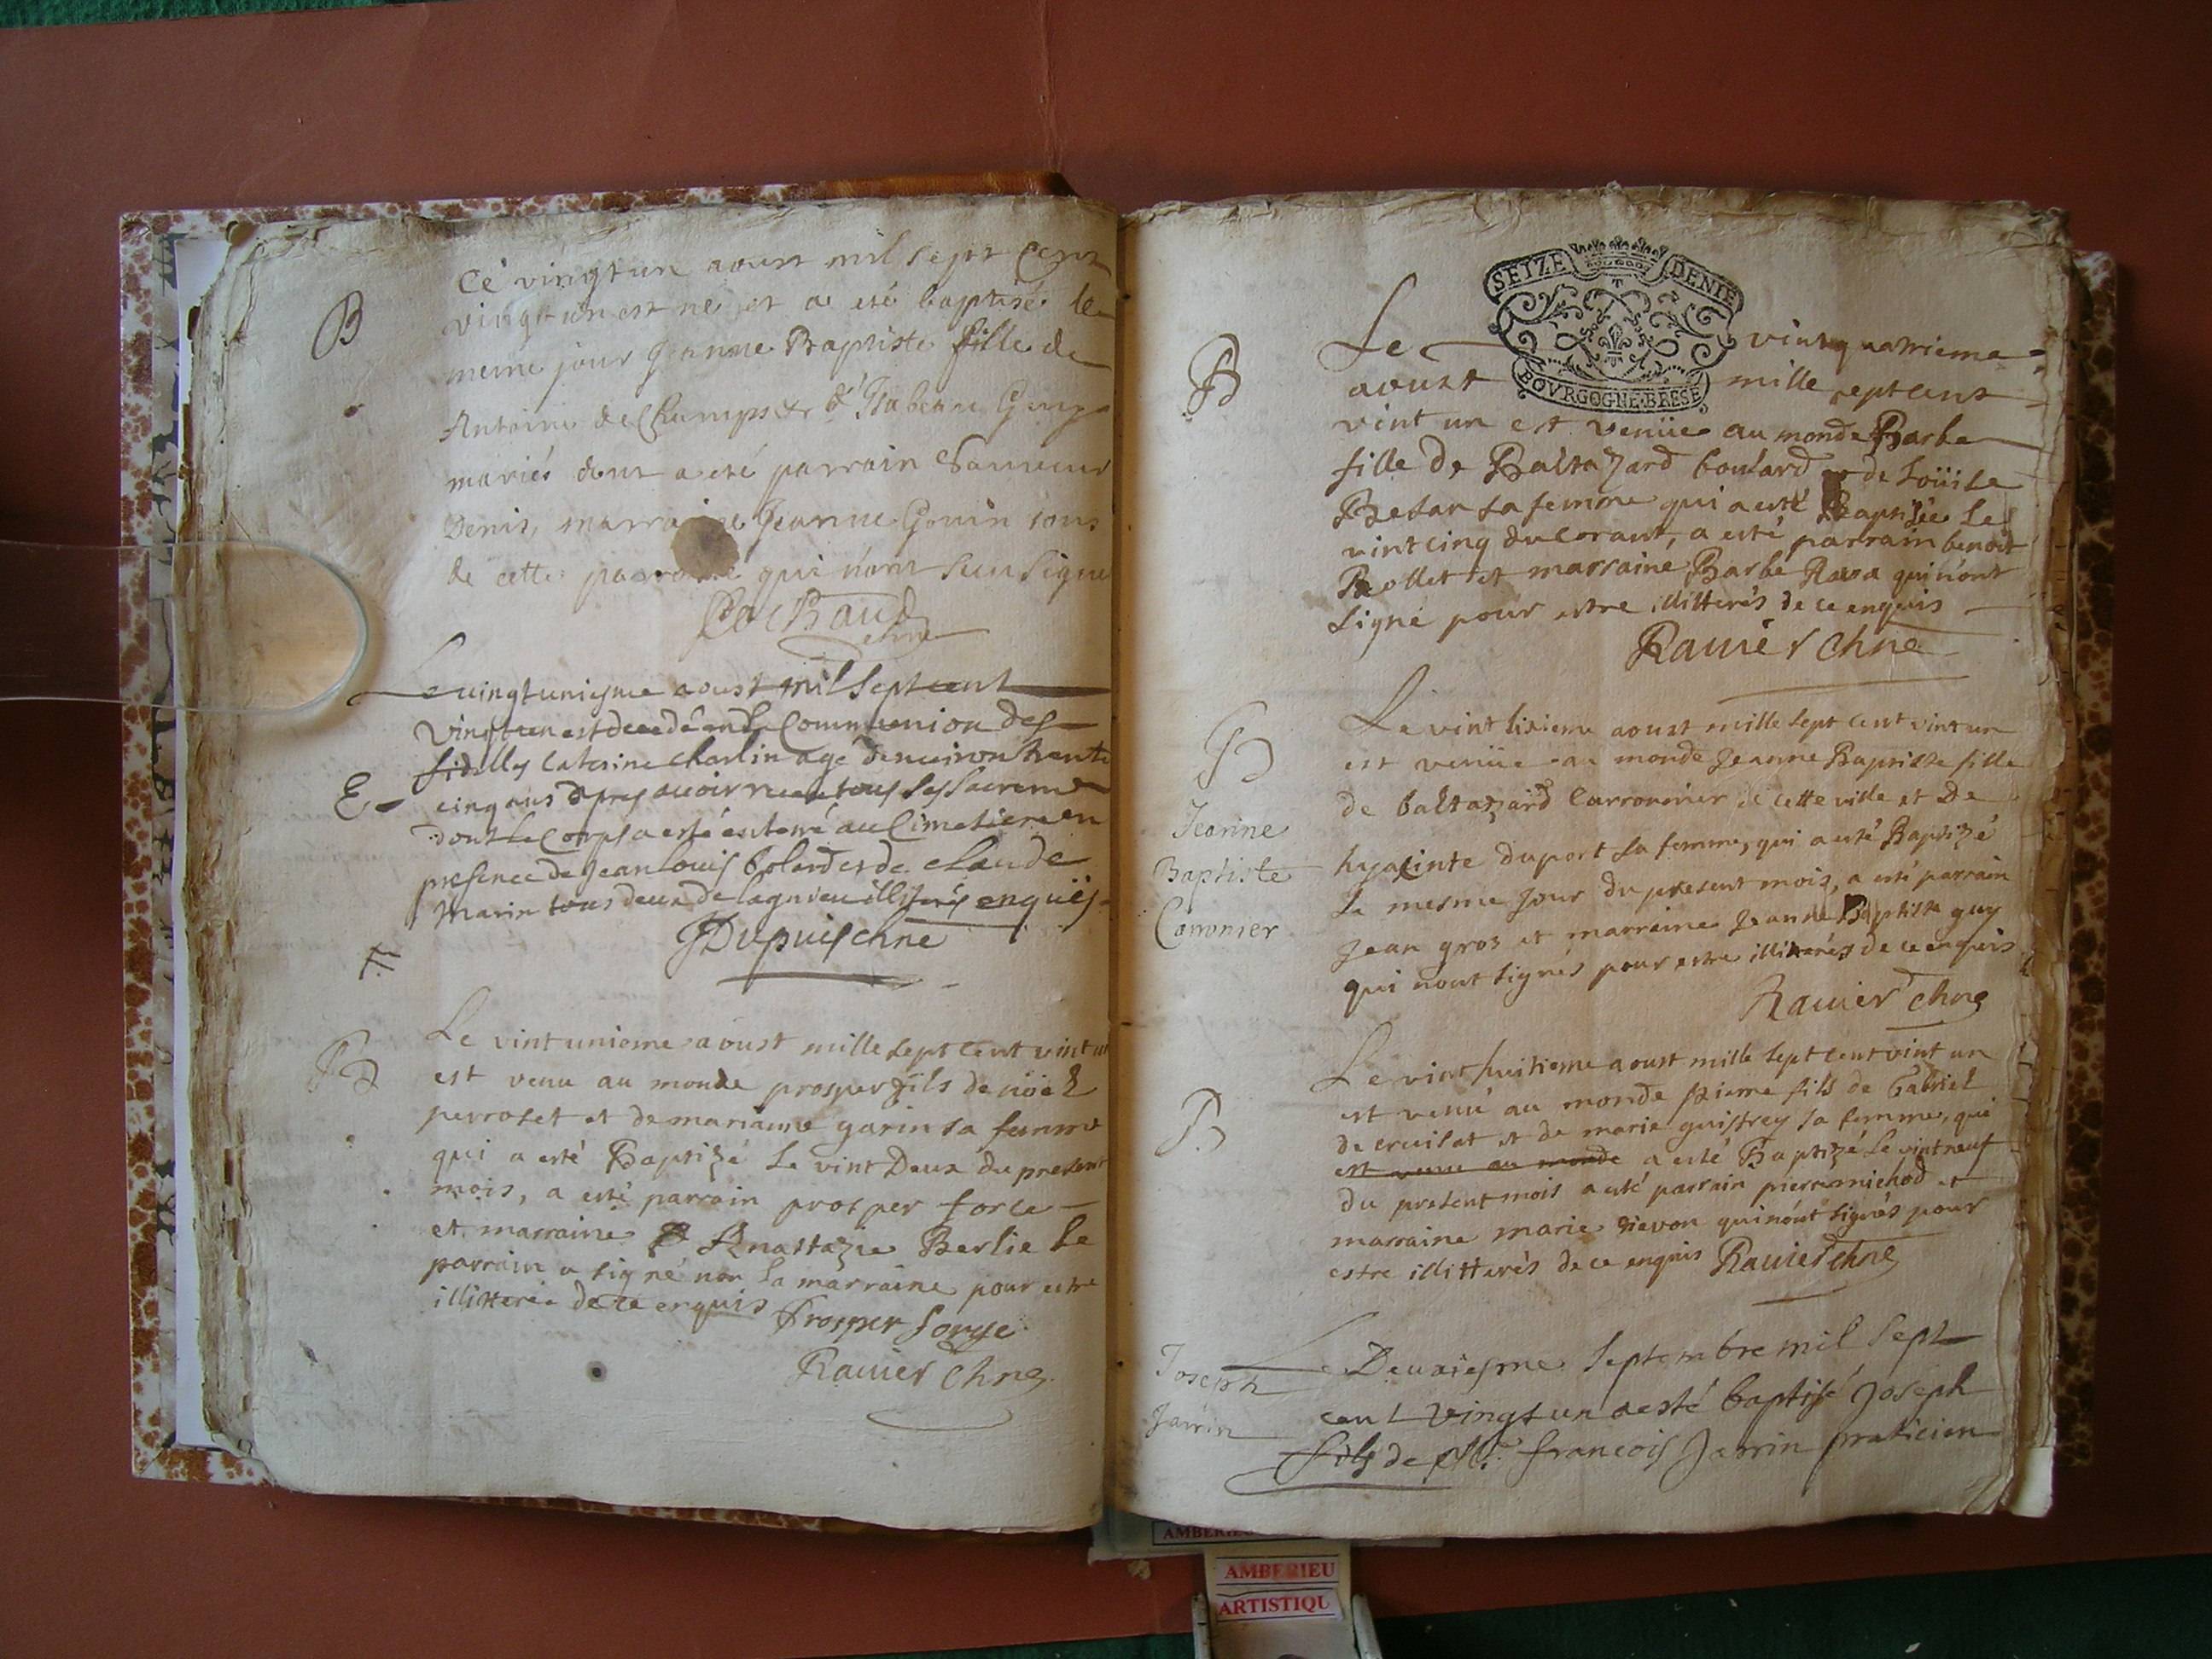 B
Ce vingt un aoust mil sept cent
vingt un est ne et a eté baptisé le
meme jour Jeanne Baptiste fille de
Antoine de Champs et d'Isabeau
mariés dont a eté parrain Sauveur
Denis, marraine Jeanne Gouin tous
de cette parroisse qui n'ont sceu signe
Cochaud
chne
Le vingtuniesme aoust mil sept cent
vingt un est decedé en la Communion des
fidelles Caterine charlin agé denuiron trente
E
cinq ans apres auoir receu tous les sacrem
dont le Corps a esté enterré au Cimetiere en
presence de Jean Louis bolard et de claude
marin tous deux de lagnieu illiterés enquis
JDupuis chne
B
Le vintunieme aoust mille sept cent vint un
est venu au monde prosper fils de nöel
perroset et de marianne garin sa femme
qui a esté Baptizé Le vint Deux du present
mois, a esté parrain prosper force
et marraine Anastazie Berlie Le
parrain a signé non la marraine pour estre
illitterée de ce enquis Prosper forge
Rauier Chne
SEIZE DENIE
BOVRGOGNE·BRESE
B
Le vintquatrieme
aoust mille septcens
vint un est venüe au monde Barbe
fille de Baltazard boulard et de Loüise
Besan sa femme qui a esté Baptisée Le
vintcinq du corant, a esté parrain benoit
Rollet et marraine Barbe Rava qui n'ont
signé pour estre illitterés de ce enquis
Rauier Chne
B
Le vint sixieme aoust mille sept cent vint un
est venüe au monde Jeanne Baptiste fille
de baltazard Carronnier de cette ville et De
Jeanne
Baptiste
Carronier
hyacinte duport sa femme, qui a esté Baptizé
Le mesme jour du present mois, a esté parrain
Jean gros et marraine Jeanne Baptiste guy
qui nont signés pour estre illitterés de ce enquis
Rauier Chne
Le vint huitieme aoust mille sept cent vint un
B
est venu au monde pierre fils de Gabriel
de cruilat et de marie guistrey sa femme, qui
est venu au monde a esté Baptizé Le vintneuf
du present mois a esté parrain pierre michod et
marraine marie rievon qui n'ont signés pour
estre illitterés de ce enquis Rauier Chne
Joseph
Jarrin
Le Deuxiesme septembre mil sept
cent vingt un a esté baptisé Joseph
fils de Mr. francois Jarrin praticien
AMBERIEU
ARTISTIQU